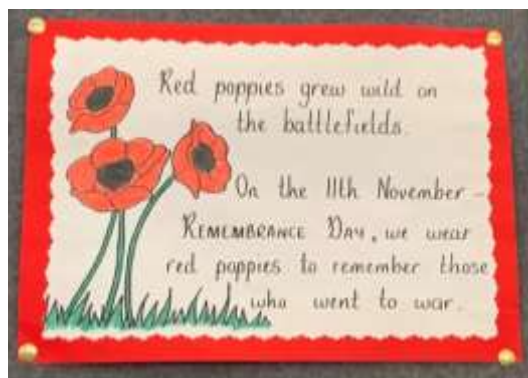 Red poppies grew wild on
the battlefields.
On the 11th November -
REMEMBRANCE DAY, we wear
red poppies to remember those
who went to war.